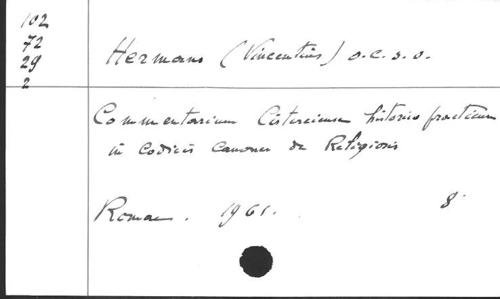 102
72
29
2
Hermans (Vincentius) o.c.s.o.
Commentarium Cisterciense historico practicum
in Codicis canones de Religiosis
Romae. 1961. 8°